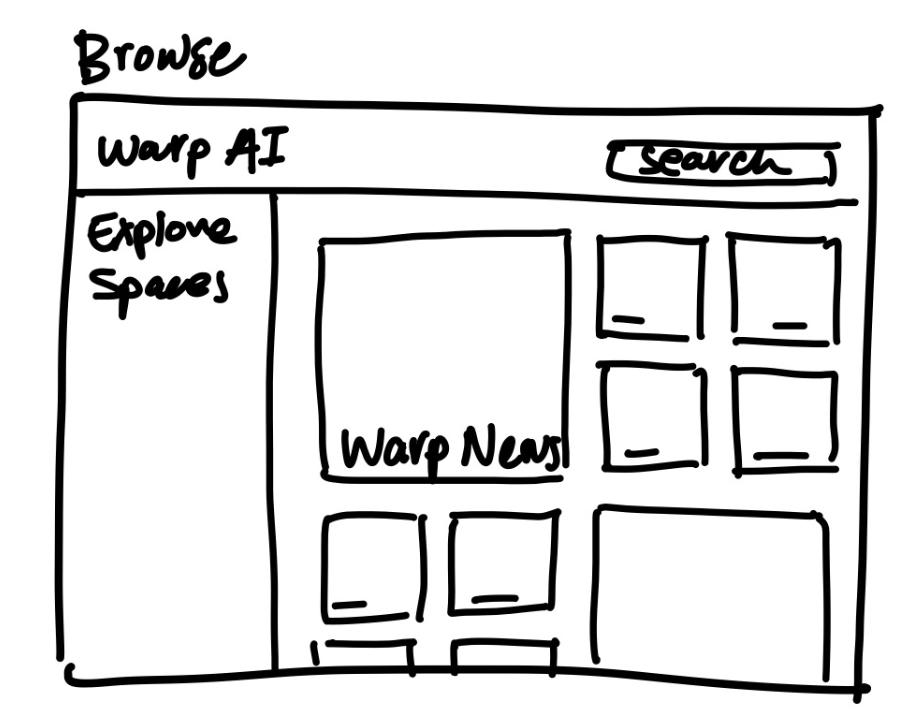 Browse
Warp AI
Search
Explore
Spaces
Warp News